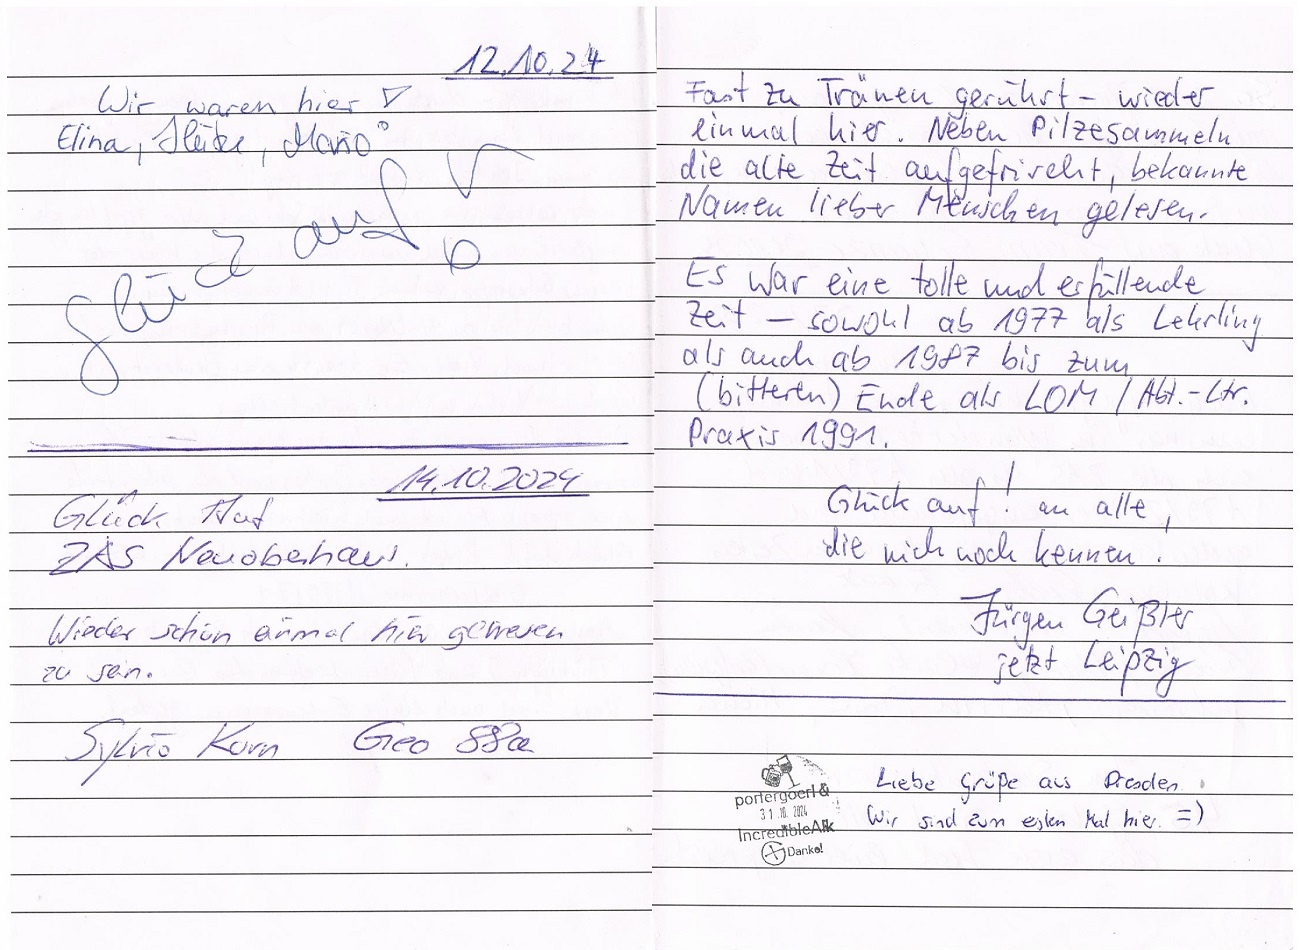 12.10.24
Wir waren hier!
Elina, Heike, Mario
Glück auf!
14.10.2024
Glück Auf
ZAS Neuoberhaus.
Wieder schön einmal hier gewesen
zu sein.
Sylvio Korn Geo 88a
Fast zu Tränen gerührt – wieder
einmal hier. Neben Pilzesammeln
die alte Zeit aufgefrischt, bekannte
Namen lieber Menschen gelesen.
Es war eine tolle und erfüllende
Zeit – sowohl ab 1977 als Lehrling
als auch ab 1987 bis zum
(bitteren) Ende als LOM / Abt.-Ltr.
Praxis 1991.
Glück auf! an alle,
die mich noch kennen!
Jürgen Geißler
jetzt Leipzig
portergoerl &
31.10.2024
IncredibleAlk
Danke!
Liebe Grüße aus Dresden.
Wir sind zum ersten Mal hier. =)